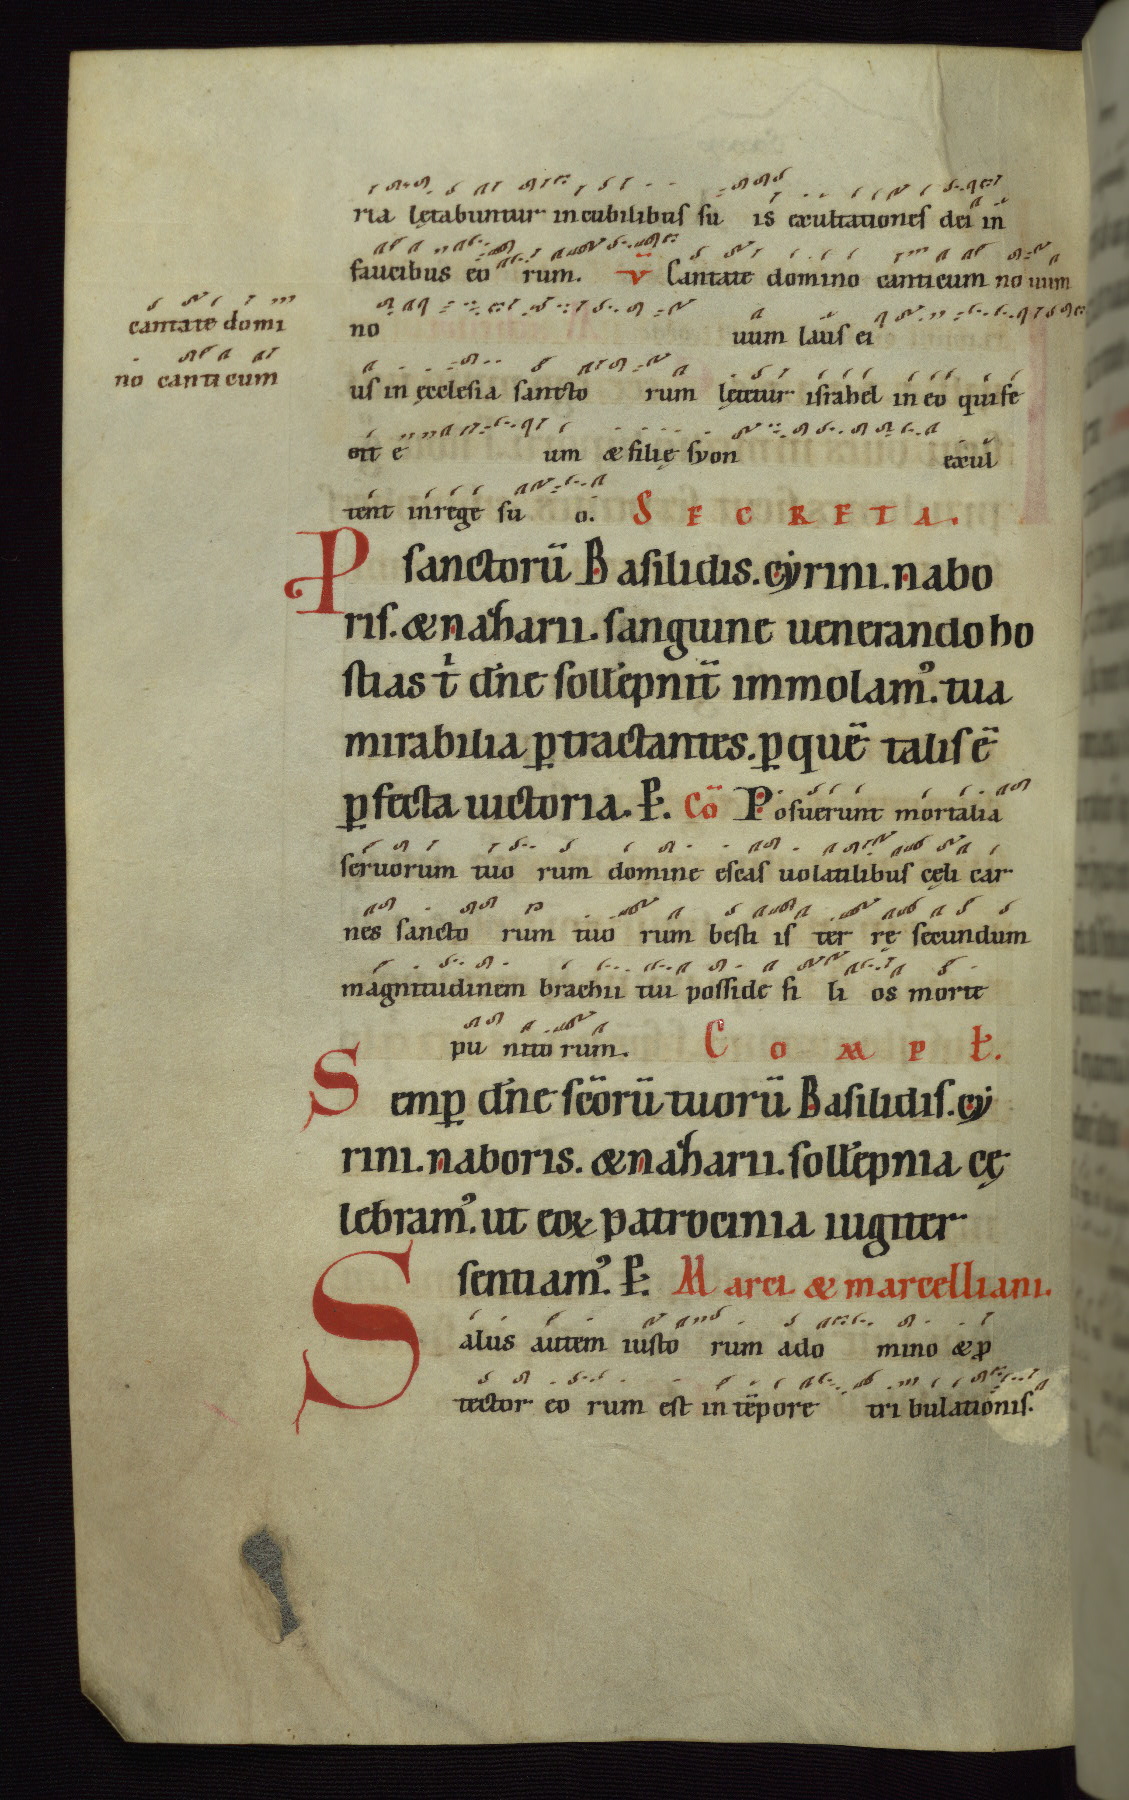 ria lętabuntur in cubilibus su is exultationes dei in
faucibus eo rum. v̄ Cantate domino canticum no uum
cantate domi
no canticum
no uum laus ei
us in ęcclesia sancto rum lętetur israhel in eo qui fe
cit e um & filię syon exul
tent in rege su o. SECRETA.
P sanctorū Basilidis. cyrini. nabo
ris. & naharii. sanguine uenerando ho
stias t͛ dn̄e sollepnit̄ immolam᾽. tua
mirabilia ꝑtractantes. ꝑ quē talis ē
ꝑfecta uictoria. P̱. cō Posuerunt mortalia
seruorum tuo rum domine escas uolatilibus cęli car
nes sancto rum tuo rum besti is ter rę secundum
magnitudinem brachii tui posside fi li os morte
pu nito rum. COMPƚ.
Semꝑ dn̄e sc̄orū tuorū Basilidis. cy
rini. naboris. & naharii. sollepnia cę
lebram᾽. ut eoꝝ patrocinia iugiter
sentiam᾽. P̱. Marci & marcelliani.
Salus autem iusto rum a do mino & ꝓ
tector eo rum est in tēpore tri bulationis.